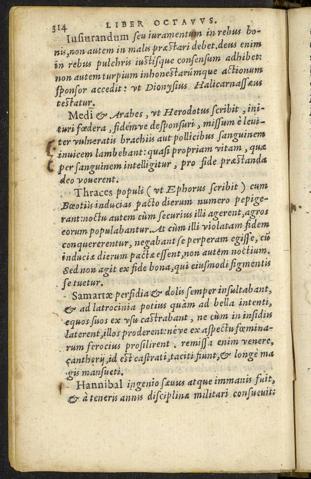 314 LIBER OCTAVVS.
Iusiurandum seu iuramentum in rebus bo-
nis, non autem in malis præstari debet. deus enim
in rebus pulchris iustisque consensum adhibet:
non autem turpium inhonestarúmque actionum
sponsor accedit: vt Dionysius Halicarnassæus
testatur.
Medi & Arabes, vt Herodotus scribit, ini-
turi fœdera, fidémve desponsuri, missum è leui-
ter vulneratis brachiis aut pollicibus sanguinem
inuicem lambebant: quasi propriam vitam, quæ
per sanguinem intelligitur, pro fide præstanda
deo vouerent.
Thraces populi (vt Ephorus scribit) cum
Bœotiis inducias pacto dierum numero pepige-
rant: noctu autem cùm securius illi agerent, agros
eorum populabantur. At cùm illi violatam fidem
conquererentur, negabant se perperam egisse, cù
induciæ dierum pactæ essent, non autem noctium.
Sed non agit ex fide bona, qui eiusmodi figmentis
se tuetur.
Samartæ perfidia & dolis semper insultabant,
& ad latrocinia potius quàm ad bella intenti,
equos suos ex vsu castrabant, ne cùm in insidiis
laterent, illos proderent: néve ex aspectu fœmina-
rum ferocius prosilirent. remissa enim venere,
cantherij, id est castrati, taciti fiunt, & longe ma
gis mansueti.
Hannibal ingenio sæuus atque immanis fuit,
& à teneris annis disciplinæ militari consueuit: